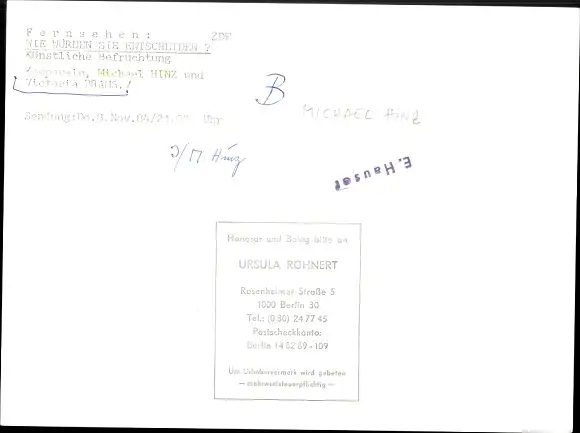 Fernsehen: ZDF
WIE WÜRDEN SIE ENTSCHEIDEN ?
Künstliche Befruchtung
Michael HINZ und
Victoria BRAMS.
Sendung:Do.8.Nov.84/21.00 Uhr
B
MICHAEL HINZ
J/M Hinz
E. Hauser
Honorar und Beleg bitte an
URSULA RÖHNERT
Rosenheimer Straße 5
1000 Berlin 30
Tel.: (030) 24 77 45
Postscheckkonto:
Berlin 14 82 89 - 109
Um Urhebervermerk wird gebeten
— mehrwertsteuerpflichtig —